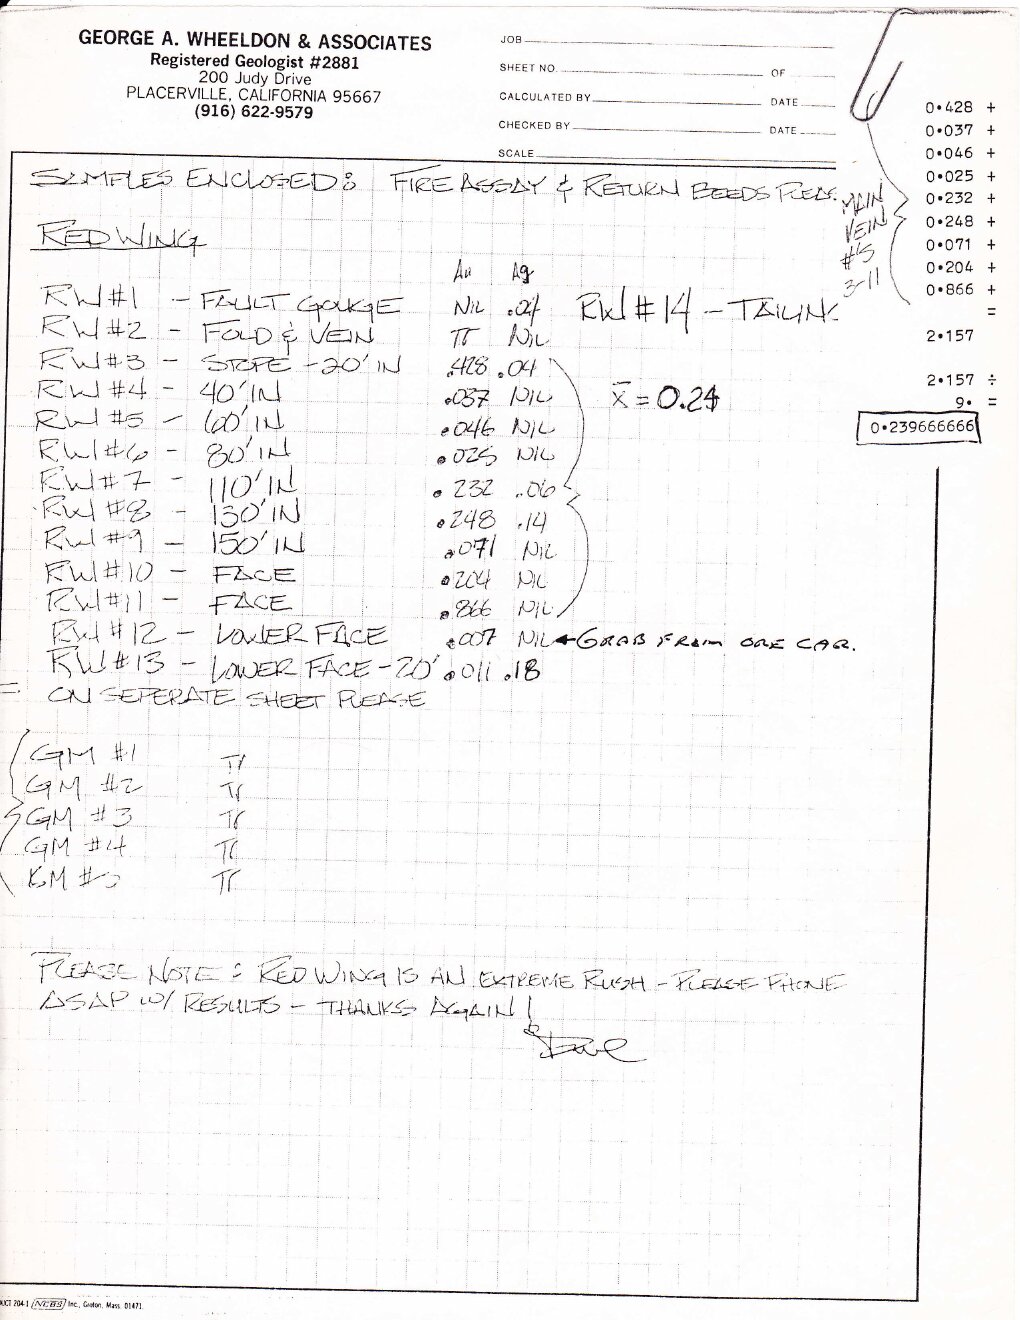 GEORGE A. WHEELDON & ASSOCIATES
Registered Geologist #2881
200 Judy Drive
PLACERVILLE, CALIFORNIA 95667
(916) 622-9579
JOB
SHEET NO. OF
CALCULATED BY DATE
CHECKED BY DATE
SCALE
SAMPLES ENCLOSED: FIRE ASSAY & RETURN BEEDS PLEAS
RED WING
Au Ag
RW #1 - FAULT GOUGE NIL .04 RW #14 - TAILING
RW #2 - FOLD & VEIN Tr NIL
RW #3 - STOPE - 20' IN .428 .04
RW #4 - 40' IN .037 NIL x̄ = 0.24
RW #5 - 60' IN .046 NIL
RW #6 - 80' IN .025 NIL
RW #7 - 110' IN .232 .06
RW #8 - 130' IN .248 .14
RW #9 - 150' IN .071 NIL
RW #10 - FACE .204 NIL
RW #11 - FACE .866 NIL
RW #12 - LOWER FACE .007 NIL ← GRAB FROM ORE CAR.
RW #13 - LOWER FACE - 20' .011 .18
= ON SEPERATE SHEET PLEASE
GM #1 Tr
GM #2 Tr
GM #3 Tr
GM #4 Tr
GM #5 Tr
PLEASE NOTE: RED WING IS AN EXTREME RUSH - PLEASE PHONE
ASAP W/ RESULTS - THANKS AGAIN!
Dave
MAIN
VEIN
#'S
3-11
0.428 +
0.037 +
0.046 +
0.025 +
0.232 +
0.248 +
0.071 +
0.204 +
0.866 +
=
2.157
2.157 ÷
9. =
0.239666666
UCT 204-1 NEBS Inc., Groton, Mass. 01471